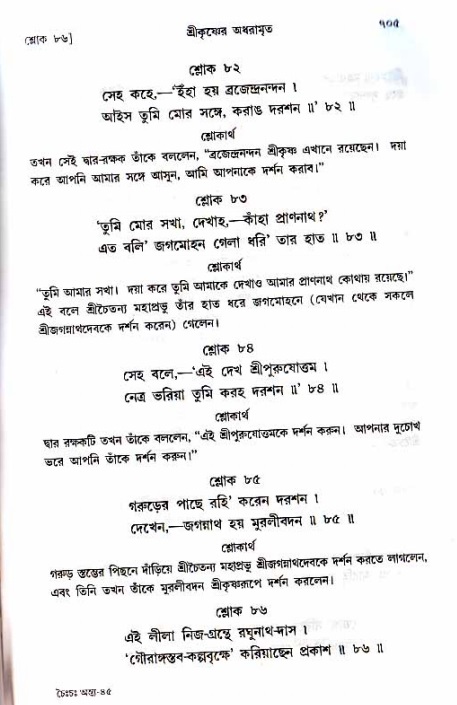 শ্লোক ৮৬]
শ্রীকৃষ্ণের অধরামৃত
৭০৫
শ্লোক ৮২
সেহ কহে,—‘ইঁহা হয় ব্রজেন্দ্রনন্দন ।
আইস তুমি মোর সঙ্গে, করাঙ দরশন ॥’ ৮২ ॥
শ্লোকার্থ
তখন সেই দ্বার-রক্ষক তাঁকে বললেন, “ব্রজেন্দ্রনন্দন শ্রীকৃষ্ণ এখানে রয়েছেন। দয়া
করে আপনি আমার সঙ্গে আসুন, আমি আপনাকে দর্শন করাব।”
শ্লোক ৮৩
‘তুমি মোর সখা, দেখাহ,—কাঁহা প্রাণনাথ?’
এত বলি’ জগমোহন গেলা ধরি’ তার হাত ॥ ৮৩ ॥
শ্লোকার্থ
“তুমি আমার সখা। দয়া করে তুমি আমাকে দেখাও আমার প্রাণনাথ কোথায় রয়েছে।”
এই বলে শ্রীচৈতন্য মহাপ্রভু তাঁর হাত ধরে জগমোহনে (যেখান থেকে সকলে
শ্রীজগন্নাথদেবকে দর্শন করেন) গেলেন।
শ্লোক ৮৪
সেহ বলে,—‘এই দেখ শ্রীপুরুষোত্তম ।
নেত্র ভরিয়া তুমি করহ দরশন ॥’ ৮৪ ॥
শ্লোকার্থ
দ্বার রক্ষকটি তখন তাঁকে বললেন, “এই শ্রীপুরুষোত্তমকে দর্শন করুন। আপনার দুচোখ
ভরে আপনি তাঁকে দর্শন করুন।”
শ্লোক ৮৫
গরুড়ের পাছে রহি’ করেন দরশন ।
দেখেন,—জগন্নাথ হয় মুরলীবদন ॥ ৮৫ ॥
শ্লোকার্থ
গরুড় স্তম্ভের পিছনে দাঁড়িয়ে শ্রীচৈতন্য মহাপ্রভু শ্রীজগন্নাথদেবকে দর্শন করতে লাগলেন,
এবং তিনি তখন তাঁকে মুরলীবদন শ্রীকৃষ্ণরূপে দর্শন করলেন।
শ্লোক ৮৬
এই লীলা নিজ-গ্রন্থে রঘুনাথ-দাস ।
‘গৌরাঙ্গস্তব-কল্পবৃক্ষে’ করিয়াছেন প্রকাশ ॥ ৮৬ ॥
চৈঃচঃ অন্ত্য-৪৫